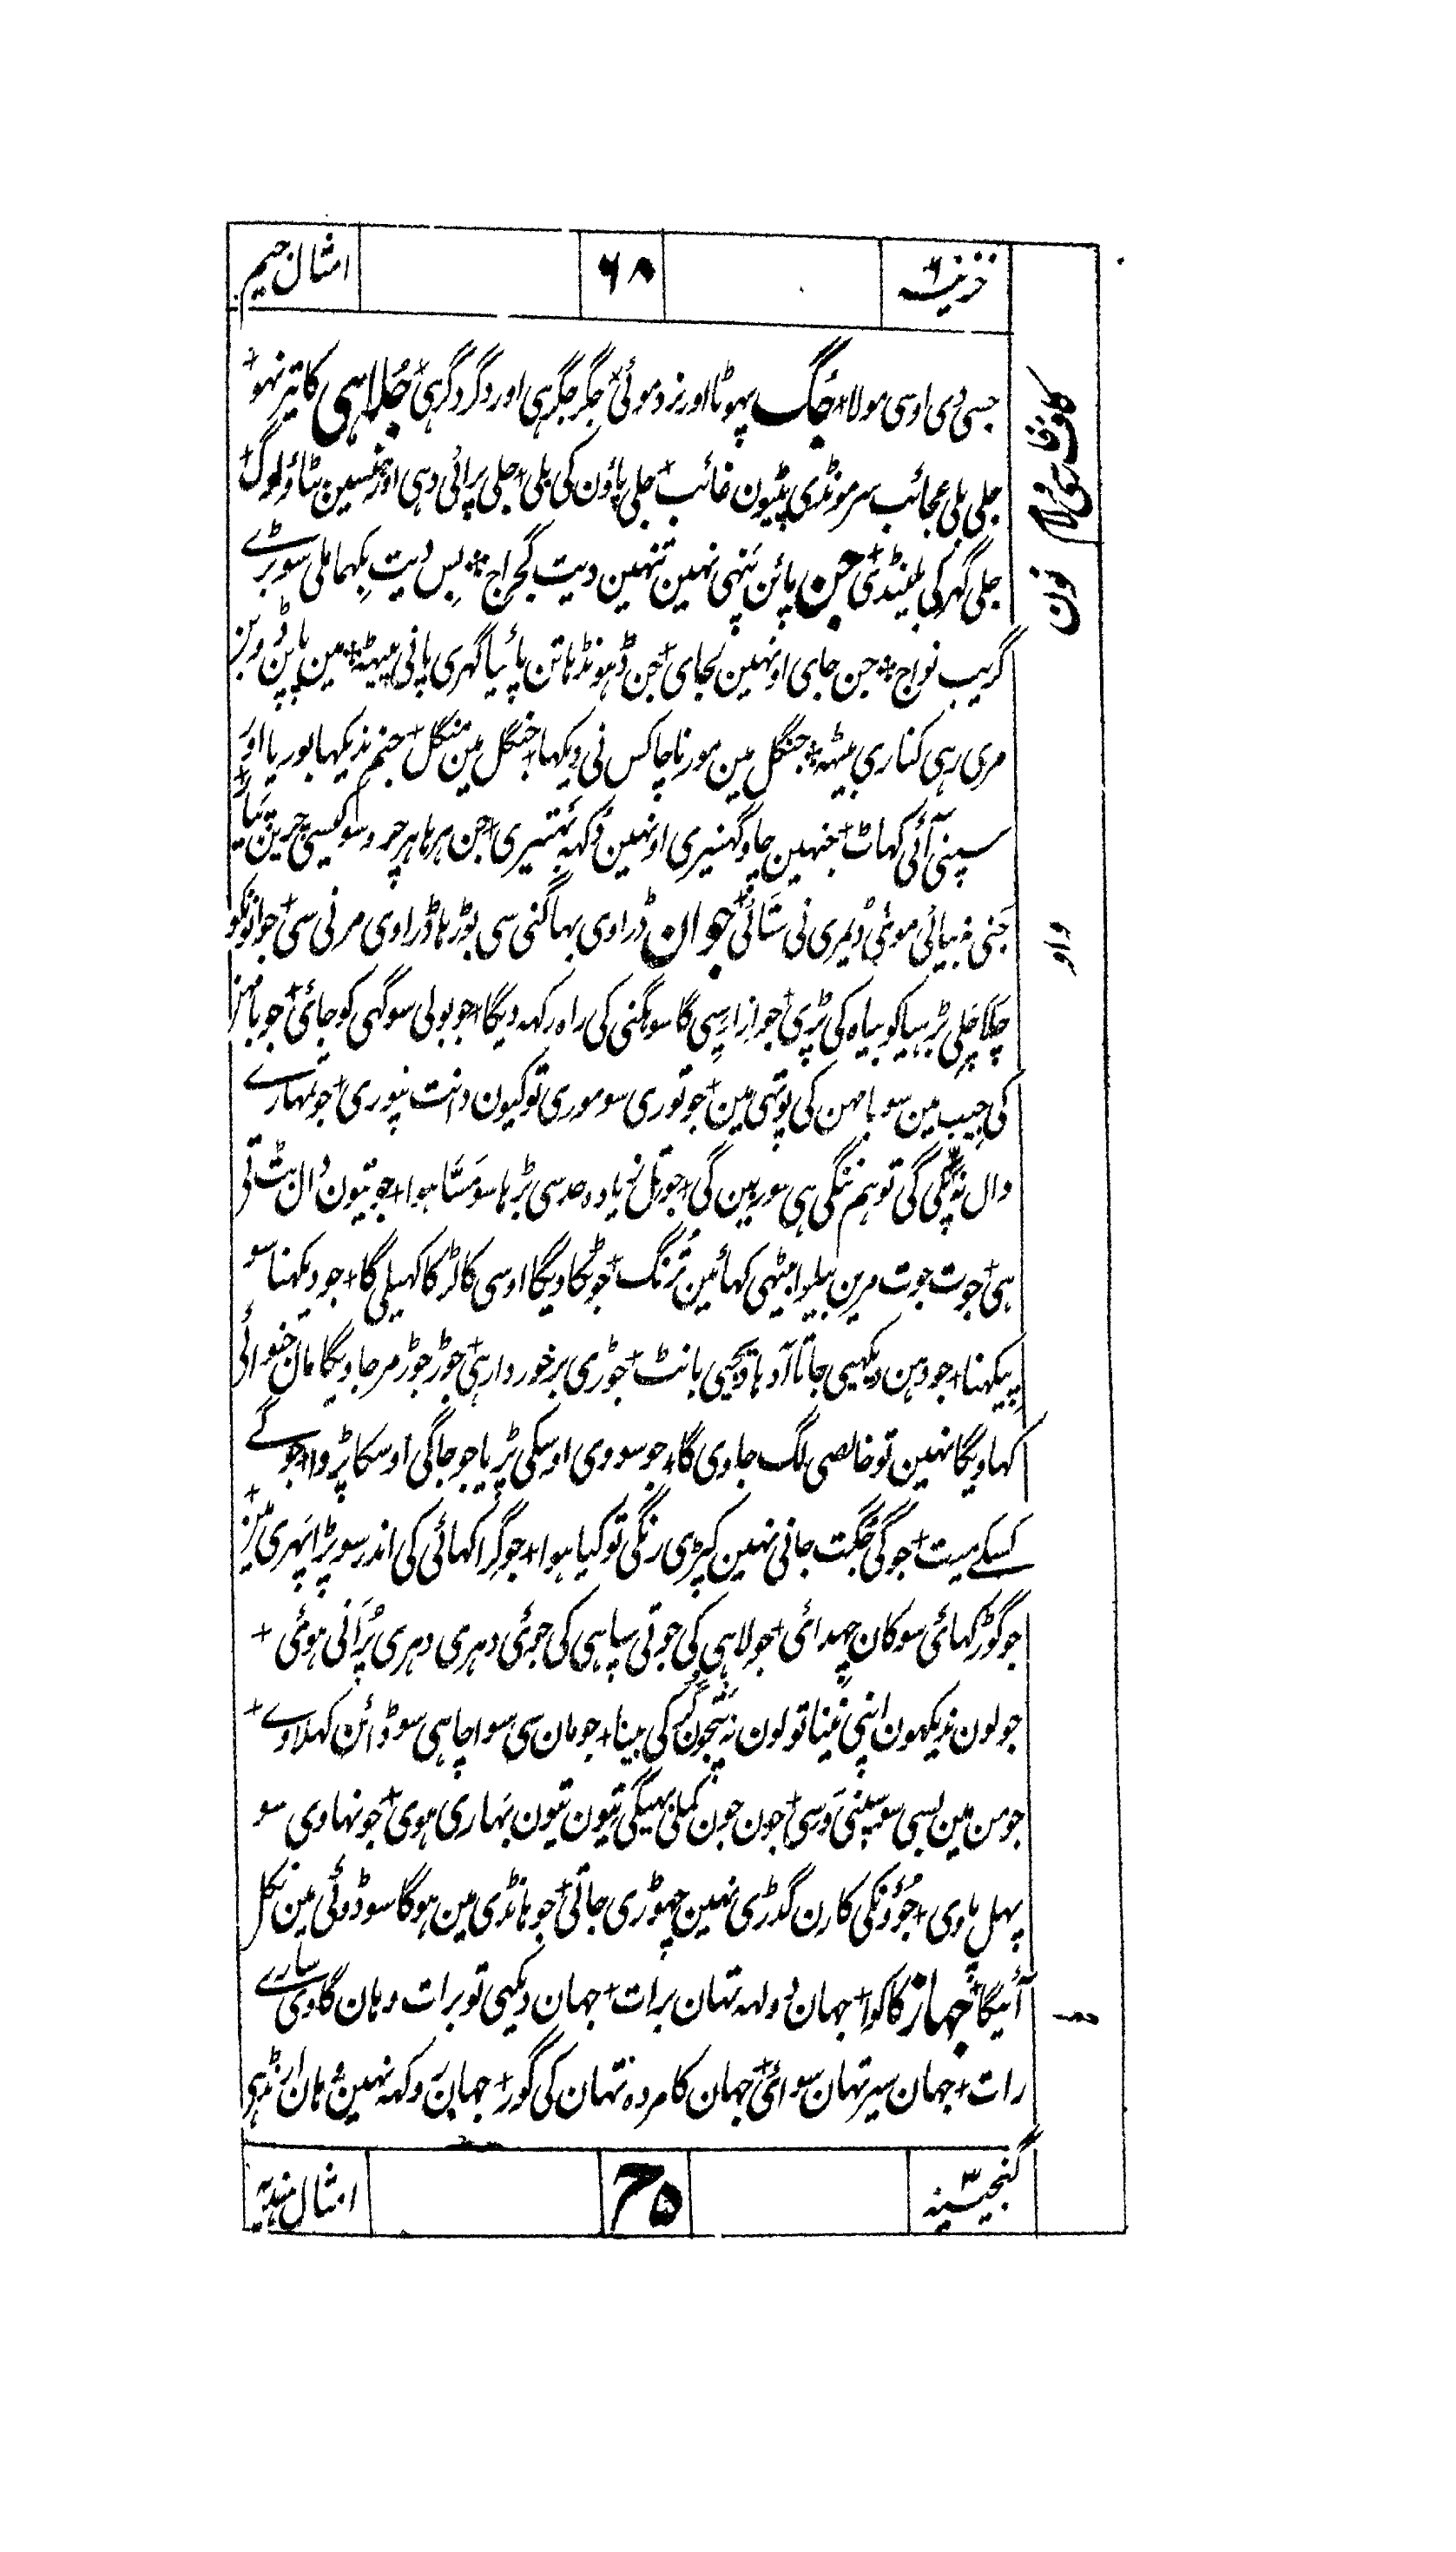 خزینہ ۶ ۶۸ امثال جیم
جسی دی اوسی مولا + جگ پہوٹا اور نرد موئی + جگر جگر ہی اور دگر دگر ہی + جُلاہی کا تیر نہو +
جلی بلی عجائب سر مونڈی پٹیون غائب + جلی پاؤن کی بلی + جلی پرائی دہی اور ہنسین بٹاؤ لوگ +
جلی گہر کی بلینڈی + جن پائن پنہی نہین تنہین دیت گجراج ❊ بِس دیت بکہما ملی سو بڑے
گریب نواج ❊ جن جای اونہین لجای + جن ڈہونڈہا تن پائیا گہری پانی پیٹہ ❊ مین باپن ڈوبن
مری رہی کناری بیٹہ ❊ جنگل مین مور ناچا کس نی دیکہا + جنگل مین منگل + جنم ندیکہا بوریا اور
سپنی آئی کہاٹ + جنہین چاو گہنیری اونہین دُکہہ بہتیری + جن ہر ہا ہر چر وسو کیسی چرین
جنی نہ بیائی موئی ڈیمری نی ستائی + جوان ڈراوی بہاگنی سی بوڑہا ڈراوی مرنی سی + جوانونکو
چکا چلی بڑہیا کو بیاہ کی پڑی + جو ازار سِی گا سو ہگنی کی راہ رکہہ دیگا + جو بولی سو گہی کو جائی + جو بامہن
کی جیب مین سو بامہن کی پوتہی مین + جو توری سو موری تو کیون دانت نپوری + جو تمہارے
دال نہ پکی گی تو ہم ننگی ہی سو رہین گی + جو تل زیادہ حد سی بڑہا سو مسّا ہوا + جوتیون دال بٹتی
ہی + جوت جوت مرین بیلوا بیٹہی کہائین تُرنگ + جو ٹکا دیگا اوسی کا لڑکا کہیلی گا + جو دیکہنا سو
پیکہنا + جو دہن دیکہیی جاتا آدہا دیجیی بانٹ + جوڑی برخوردار ہی + جوڑ جوڑ مر جاویگا مال جنوائی
کہاویگا نہین تو خالصی لگ جاوی گا + جو سووی اوسکی پڑیا جو جاگی اوسکا پڑوا + جوگے
کسکے میت + جوگی جگت جانی نہین کپڑی رنگی تو کیا ہوا + جو گِرا کہائی کی اندر سو پڑا پہری مین +
جو گوڑ کہائی سو کان چہدائی + جولاہی کی جوتی سپاہی کی جوئی دہری دہری پُرانی ہوئی +
جو لون ندیکہون اپنی نینا تو لون نہ پتیجون گر کی بینا + جو مان سی سوا چاہی سو ڈائن کہلاوے +
جو من مین بسی سو سپنی وسی + جون جون کملی بہیگی تیون تیون بہاری ہوی + جو نہاوی سو
پہل پاوی + جُوؤنکی کارن گدڑی نہین چہوڑی جاتی + جو ہانڈی مین ہوگا سو ڈوئی مین نکل
آئیگا + جہاز کا کوا + جہان دولہہ تہان برات + جہان دیکہی تو برات وہان گاوی سارے
رات + جہان سیر تہان سوائی + جہان کا مردہ تہان کی گور + جہان روکہہ نہین وہان ارنڈہی
گنجینہ ۳ ح۵ امثال ہندیہ
کاف فارسی لام
نون
واو